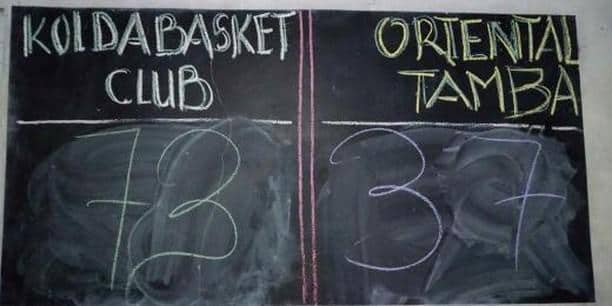 KOLDABASKET CLUB
ORIENTAL TAMBA
73
37